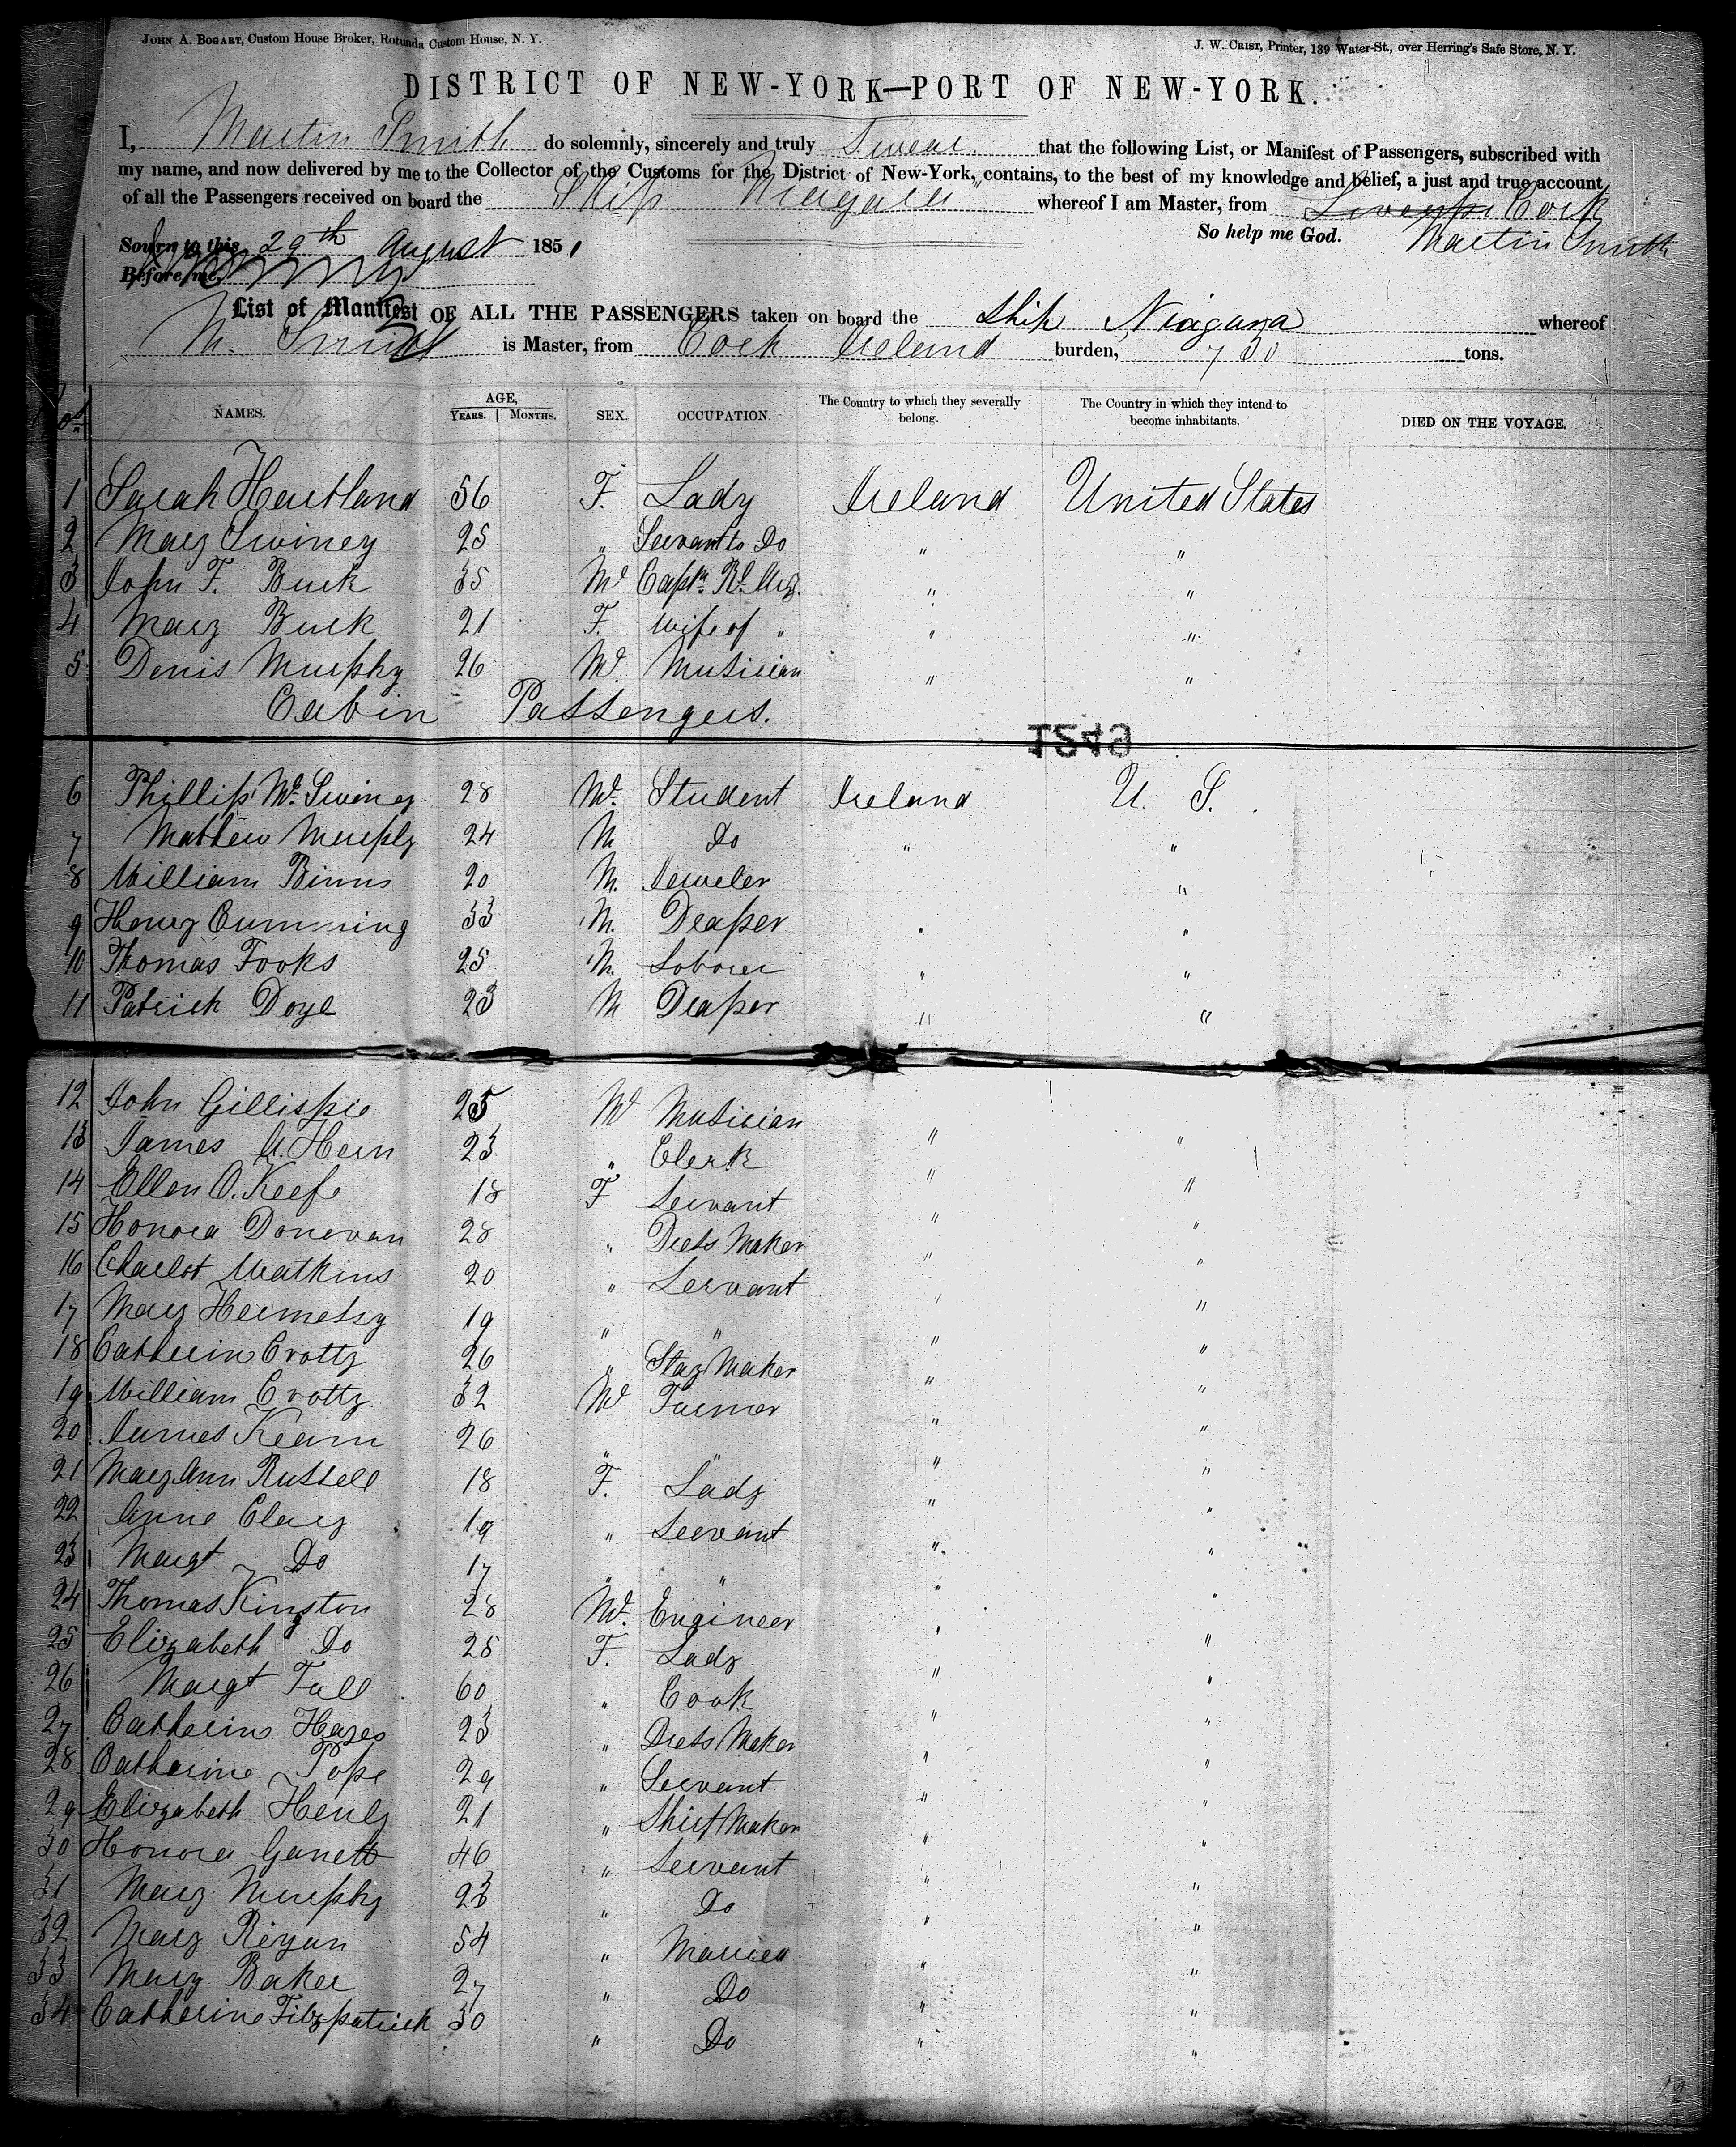 JOHN A. BOGART, Custom House Broker, Rotunda Custom House, N. Y.
J. W. CRIST, Printer, 139 Water-St., over Herring's Safe Store, N. Y.
DISTRICT OF NEW-YORK—PORT OF NEW-YORK.
I, Martin Smith do solemnly, sincerely and truly Swear that the following List, or Manifest of Passengers, subscribed with
my name, and now delivered by me to the Collector of the Customs for the District of New-York, contains, to the best of my knowledge and belief, a just and true account
of all the Passengers received on board the Ship Niagara whereof I am Master, from Cork
So help me God. Martin Smith
Sworn to this 29th August 1851
Before me,
List of Manifest OF ALL THE PASSENGERS taken on board the Ship Niagara whereof
M. Smith is Master, from Cork Ireland burden, 730 tons.
NAMES. AGE, YEARS. MONTHS. SEX. OCCUPATION. The Country to which they severally belong. The Country in which they intend to become inhabitants. DIED ON THE VOYAGE.
1 Sarah Hartland 56 F. Lady Ireland United States
2 Mary Swiney 25 " Servant to Do " "
3 John F. Buck 35 M Captn Rl Arty. " "
4 Mary Buck 21 F. Wife of " " "
5 Denis Murphy 26 M. Musician " "
Cabin Passengers.
6 Phillip Mc Swiney 28 M. Student Ireland U. S.
7 Mathew Murphy 24 M Do " "
8 William Binns 20 M. Jeweler "
9 Henry Cumming 33 M. Draper " "
10 Thomas Fooks 25 M. Laborer " "
11 Patrick Doyl 23 M Draper " "
12 John Gillispie 25 M Musician
13 James A. Hern 23 " Clerk " "
14 Ellen O. Keefe 18 F Servant " "
15 Honora Donevan 28 " Dress Maker " "
16 Charlot Watkins 20 " Servant " "
17 Mary Hermessy 19 " " " "
18 Catherin Crotty 26 " Stay Maker " "
19 William Crotty 32 M Farmer " "
20 James Kearn 26 " " " "
21 Mary Ann Russell 18 F. Lady " "
22 Anne Clary 19 " Servant " "
23 Margt Do 17 " " " "
24 Thomas Kingston 28 M. Engineer " "
25 Elizabeth Do 25 F. Lady " "
26 Margt Fall 60 " Cook " "
27 Catherine Hayes 23 " Dress Maker " "
28 Catherine Pope 29 " Servant " "
29 Elizabeth Henly 21 " Shirt Maker " "
30 Honora Garrett 46 " Servant " "
31 Mary Murphy 23 " Do " "
32 Mary Riyan 54 " Married " "
33 Mary Baker 27 " Do " "
34 Catherine Fitzpatrick 30 " Do " "